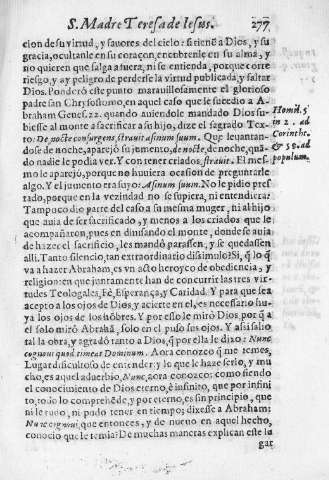 S. Madre Teresa de Iesus. 277
cion de su virtud, y fauores del cielo: si tiene a Dios, y su
gracia, ocultanle en su coraçon, encubrenle en su alma, y
no quieren que salga a fuera, ni se entienda, porque corre
riesgo, y ay peligro de perderse la virtud publicada, y faltar
Dios. Ponderó esto punto marauillosamente el glorioso
padre san Chrysostomo, en aquel caso que le sucedio a A-
braham Genes. 22. quando auiendole mandado Dios su-
biesse al monte a sacrificar a su hijo, dize el sagrado Tex-
to: De nocte consurgens, strauit asinum suum. Que leuantan-
dose de noche, aparejò su jumento, de nocte, de noche, quã-
do nadie le podia ver. Y con tener criados, strauit. El mes-
mo le aparejò, porque no huuiera ocasion de preguntarle
algo. Y el jumento era suyo: Asinum suum. No le pidio pres-
tado, porque en la vezindad no se supiera, ni entendiera:
Tampoco dio parte del caso a su mesma muger, ni al hijo
que auia de ser sacrificado, y menos a los criados que le
acompañaron, pues en diuisando el monte, donde se auia
de hazer el sacrificio, les mandò parassen, y se quedassen
alli. Tanto silencio, tan extraordinario dissimulo? Si, q̃ lo q̃
va a hazer Abraham, es vn acto heroyco de obediencia, y
religion: en que juntamente han de concurrir las tres vir-
tudes Teologales, Fè, Esperança, y Caridad. Y para que sea
acepto a los ojos de Dios, y acierte en el, es necessario hu-
ya los ojos de los hõbres. Y por esso le mirò Dios, porq̃ a
el solo mirò Abrahã, solo en el puso sus ojos. Y assi salio
tal la obra, y agradò tanto a Dios, q̃ por ella le dixo: Nunc
cognoui quod timeas Dominum. Aora conozco q̃ me temes,
Lugar dificultoso de entender; y lo que le haze serlo, y mu
cho, es aquel aduerbio, Nunc, aora conozco: como siendo
el conocimiento de Dios eterno, è infinito, que por infini
to, todo lo comprehẽde, y por eterno, es sin principio, que
ni le tuuo, ni pudo tener en tiempo; dixesse a Abraham:
Nunc cognoui, que entonces, y de nueuo en aquel hecho,
conocio que le temia? De muchas maneras explican este lu
gar
Homil. 5
in 2. ad
Corinth.
& 50. ad
populum.